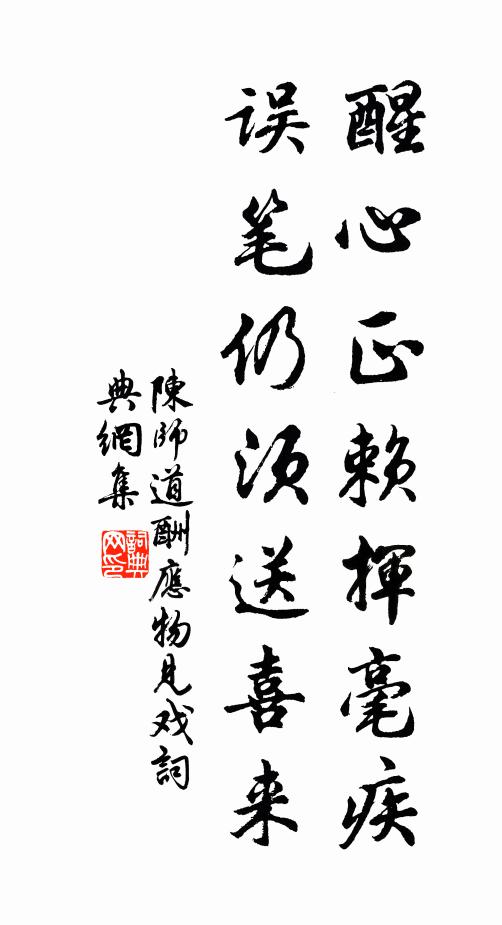 醒心正赖揮毫疾
误笔仍须送喜来
陳師道酬應物見戏詞
典網集
詞典
网印